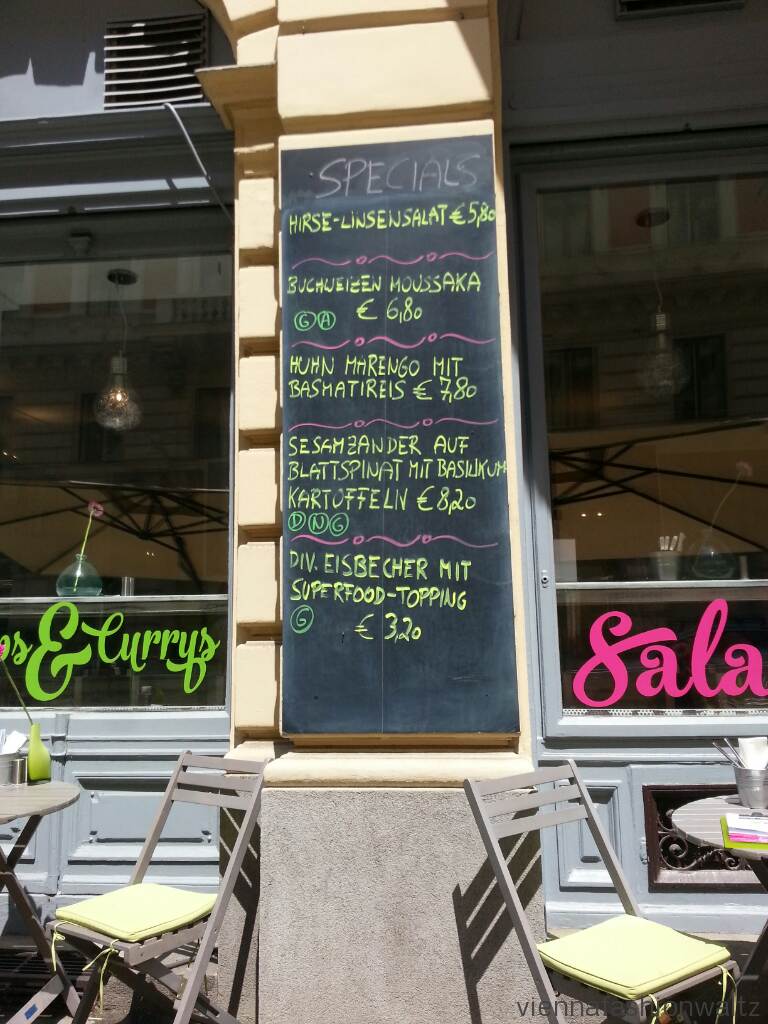 SPECIALS
HIRSE-LINSENSALAT € 5,80
BUCHWEIZEN MOUSSAKA
€ 6,80
G A
HUHN MARENGO MIT
BASMATIREIS € 7,80
SESAMZANDER AUF
BLATTSPINAT MIT BASILIKUM
KARTOFFELN € 8,20
D N G
DIV. EISBECHER MIT
SUPERFOOD-TOPPING
G
€ 3,20
os & Currys
Sala
viennafashionwaltz